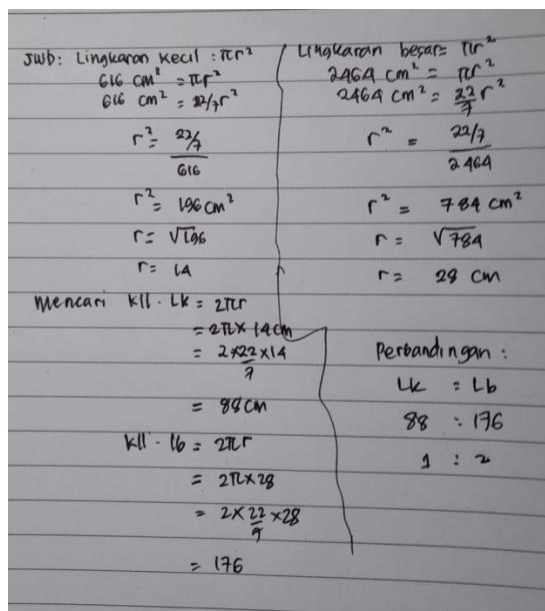 Jwb: Lingkaran kecil : πr²
616 cm² = πr²
616 cm² = 22/7 r²
r² = 22/7
616
r² = 196 cm²
r = √196
r = 14
Mencari Kll. Lk = 2πr
= 2π × 14 cm
= 2 × 22/7 × 14
= 88 cm
Kll. lb = 2πr
= 2π × 28
= 2 × 22/7 × 28
= 176
Lingkaran besar = πr²
2464 cm² = πr²
2464 cm² = 22/7 r²
r² = 22/7
2464
r² = 784 cm²
r = √784
r = 28 cm
Perbandingan :
Lk : Lb
88 : 176
1 : 2